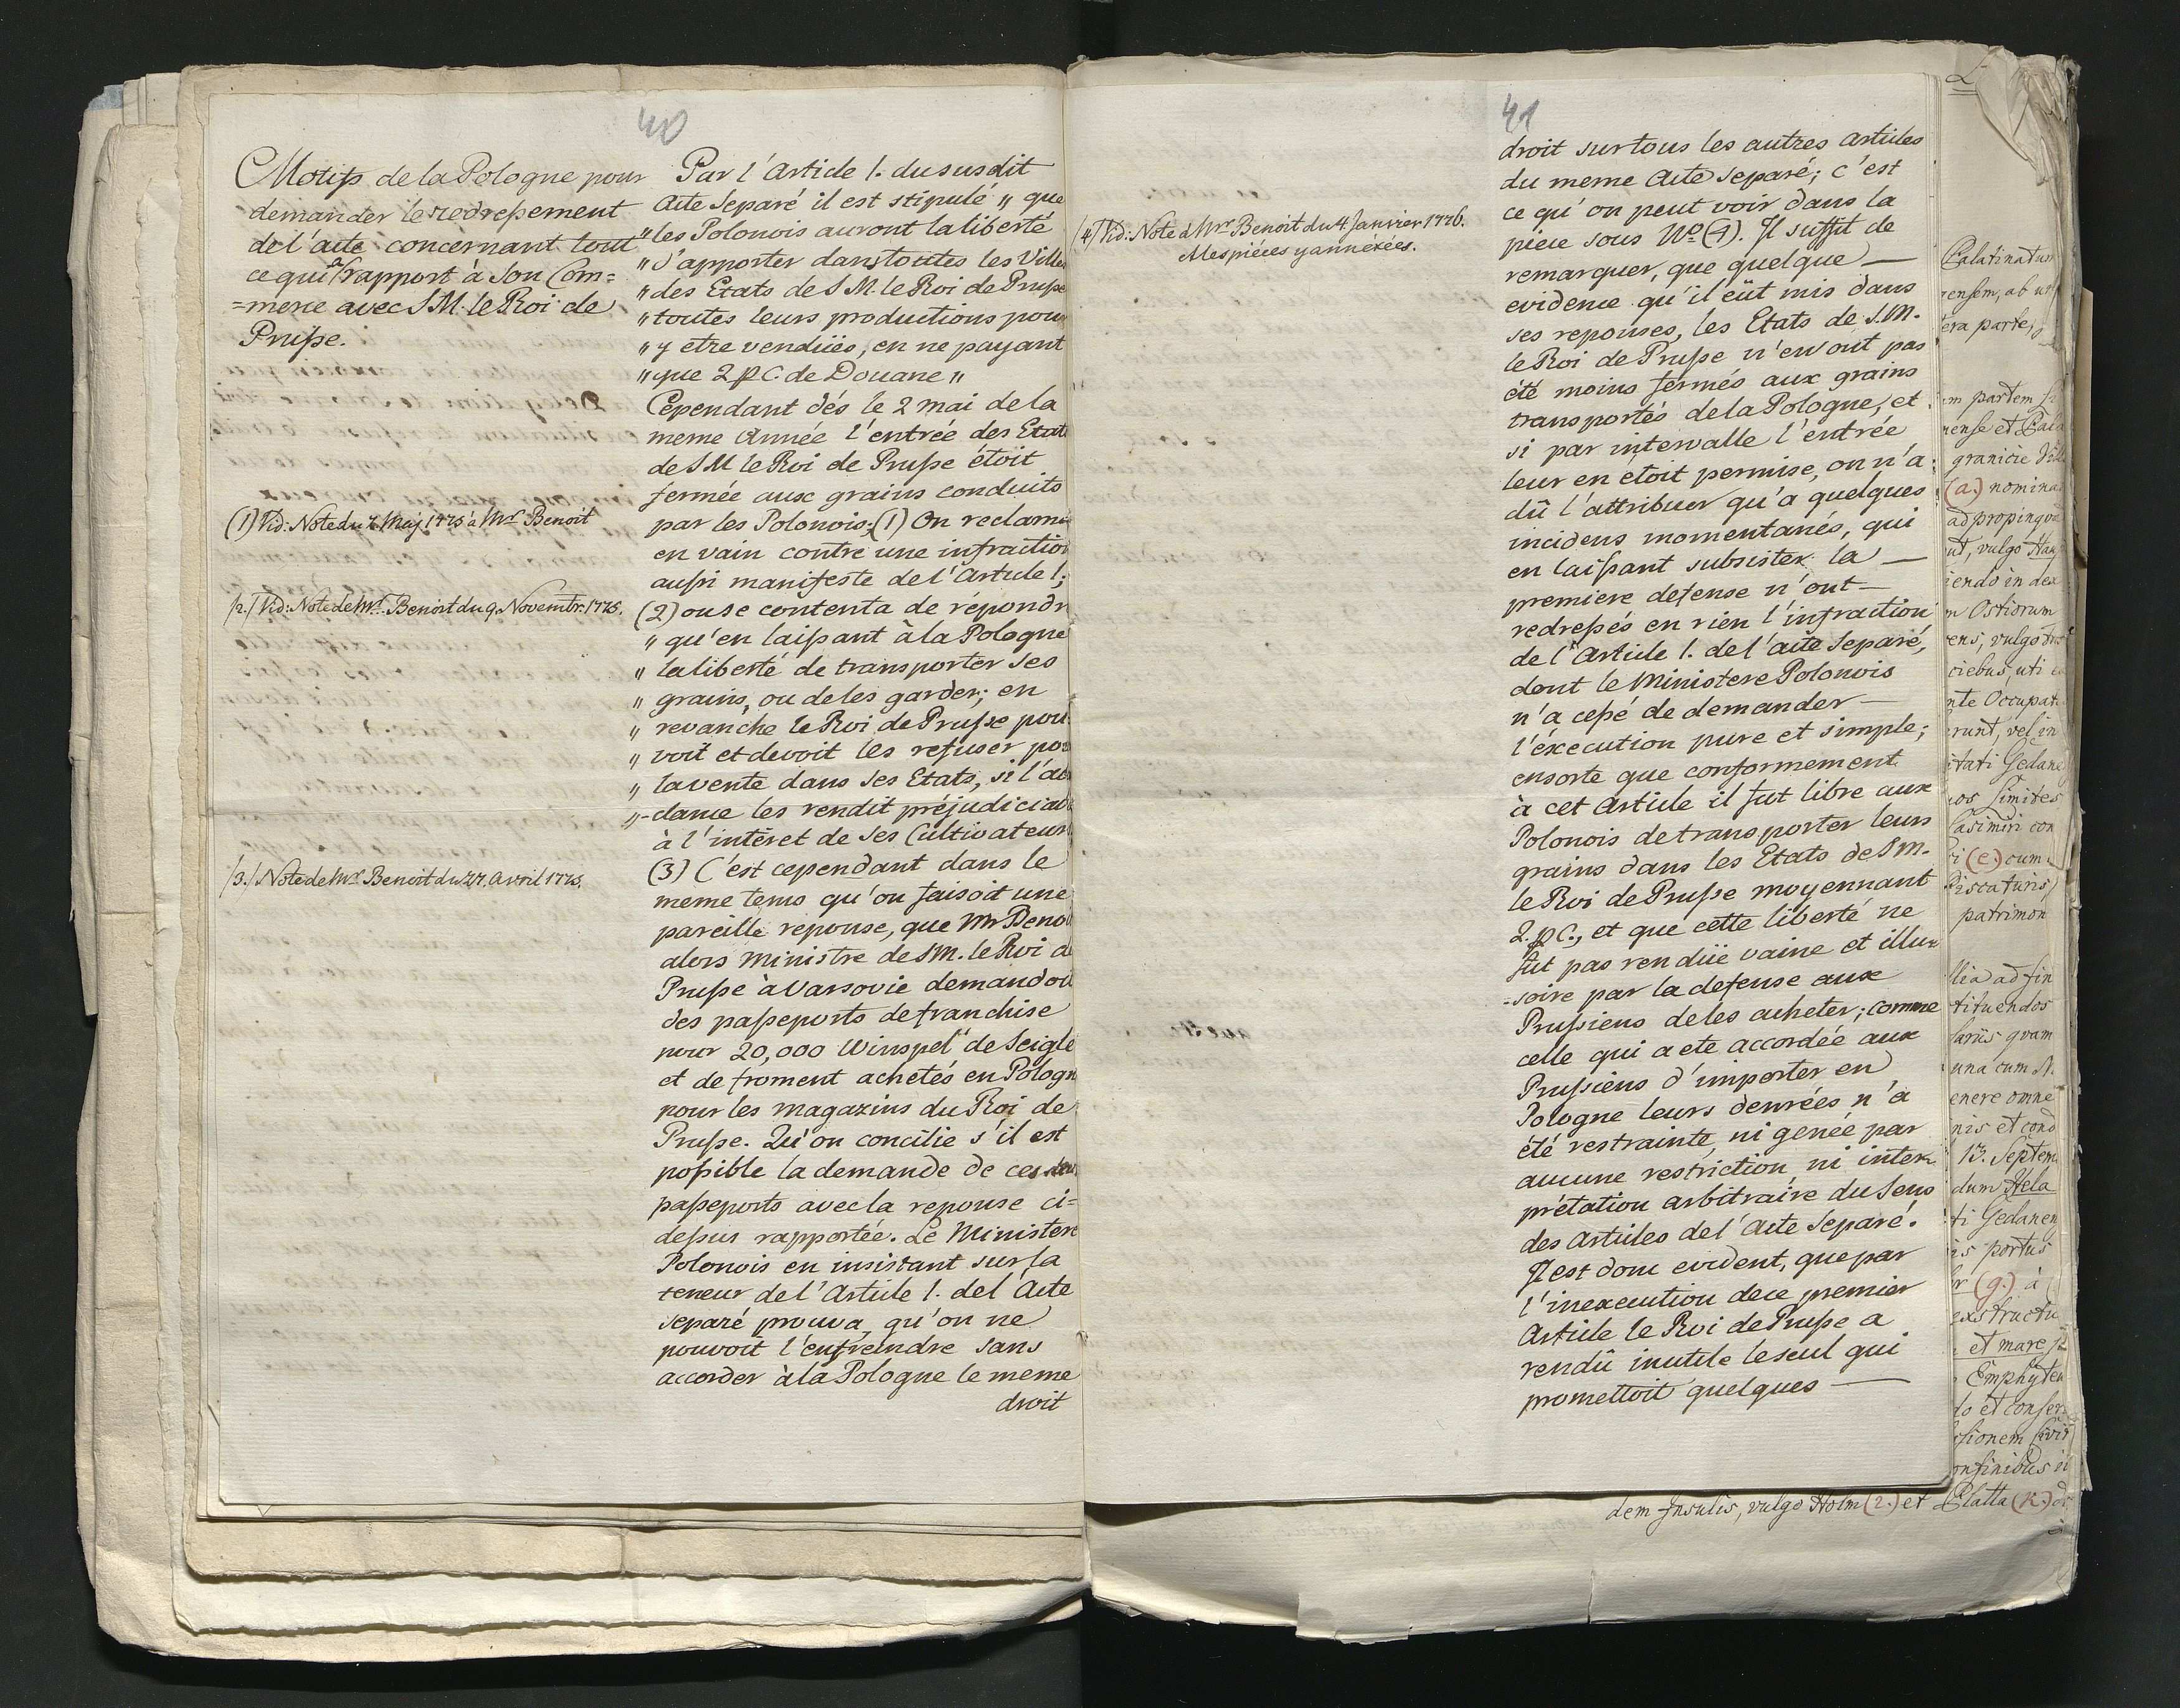 40
Motifs de la Pologne pour
demander le redressement
de l'acte concernant tout
ce qui a rapport à son Com=
=merce avec S M. le Roi de
Prusse.
(1) Vid: Note du 2 Maj 1775 à Mr Benoit
(2.) Vid: Note de Mr. Benoit du 9. Novembr. 1775.
(3.) Note de Mr Benoit du 27. Avril 1775.
Par l'Article 1. du susdit
Acte Separé il est stipulé „ que
„ les Polonois auront la liberté
„ d'apporter dans toutes les Villes
„ des Etats de S M. le Roi de Prusse
„ toutes leurs productions pour
„ y etre vendües, en ne payant
„ que 2 p C. de Douane „
Cependant dés le 2 mai de la
meme Année l'entrée des Etats
de S M le Roi de Prusse étoit
fermée aux grains conduits
par les Polonois; (1) On reclama
en vain contre une infraction
aussi manifeste de l'Article 1;
(2) on se contenta de répondre
„ qu'en laissant à la Pologne
„ la liberté de transporter ses
„ grains, ou de les garder; en
„ revanche le Roi de Prusse pou-
„ voit et devoit les refuser pour
„ la vente dans ses Etats, si l'abon
„-dance les rendit préjudiciable
à l'intéret de ses Cultivateurs
(3) C'est cependant dans le
meme tems qu'on faisoit une
pareille reponse, que Mr Benoit
alors Ministre de S M. le Roi de
Prusse à Varsovie demandoit
des passeports de franchise
pour 20,000 Winspel de Seigle
et de froment achetés en Pologne
pour les magazins du Roi de
Prusse. Qu'on concilie s'il est
possible la demande de ces
passeports avec la reponse ci=
dessus rapportée. Le Ministere
Polonois en insistant sur la
teneur de l'Article 1. de l'Acte
separé prouva, qu'on ne
pouvoit l'enfreindre sans
accorder à la Pologne le meme
droit
41
(4) Vid: Note d Mr. Benoit du 4 Janvier 1776.
& les piéces y annéxées.
droit sur tous les autres articles
du meme Acte separé; c'est
ce qu'on peut voir dans la
piece sous No (4). Il suffit de
remarquer, que quelque —
evidence qu'il eüt mis dans
ses reponses, les Etats de S.M.
le Roi de Prusse n'en ont pas
été moins fermés aux grains
transportés de la Pologne, et
si par intervalle l'entrée
leur en étoit permise, on n'a
dû l'attribuer qu'a quelques
incidens momentanés, qui
en laissant subsister la —
premiere defense n'ont —
redressés en rien l'infraction
de l'Article 1. de l'acte Separé,
dont le Ministere Polonois
n'a cessé de demander —
l'éxecution pure et simple;
ensorte que conformement
à cet Article il fut libre aux
Polonois de transporter leurs
grains dans les Etats de S M.
le Roi de Prusse moyennant
2. p C., et que cette liberté ne
fut pas rendüe vaine et illu=
=soire par la defense aux
Prussiens de les acheter; comme
celle qui a ete accordée aux
Prussiens d'importer en
Pologne leurs denrées n'a
été restrainte, ni genée par
aucune restriction ni inter=
prétation arbitraire du Sens
des Articles de l'Acte Separé.
Il est donc evident, que par
l'inexecution de ce premier
Article le Roi de Prusse a
rendû inutile le seul qui
promettoit quelques —
Palatinatum
rensem, ab
tera parte,
m partem
nense et
granicie
(a.) nomina
ad propinqua
ut, vulgo
iendo in
m Ostiorum
rens, vulgo
ciebus, uti
nte Occupat
runt, vel in
itati Gedane
os Limites
Casimiri con
i (e.) cum
Piscaturis
patrimon
lia ad fin
tituendos
lariis quam
una cum
enere omne
nis et cond
13. Septem
dum Hela
ti Gedanen
is portus
r (g.) à
exstructu
et mare
Emphyteu
do et conser
ssionem
onfinibus
dem Insulis, vulgo Holm (i.) et Platta (k.)